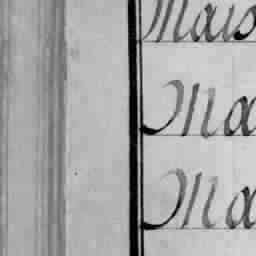 Mais
Ma
Ma